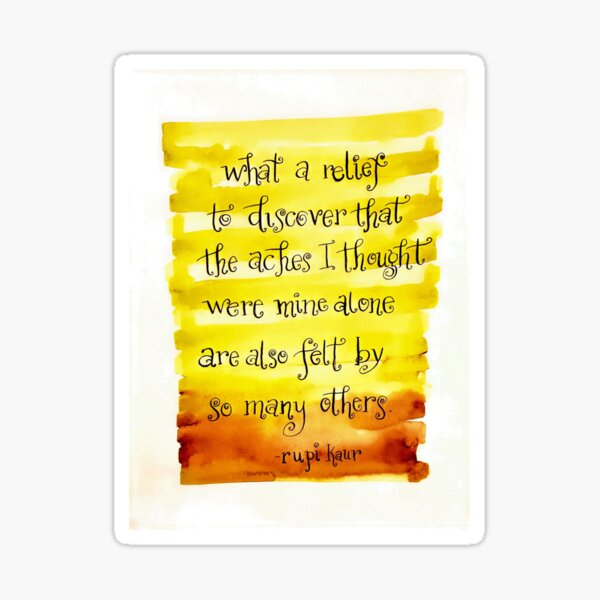 what a relief
to discover that
the aches I thought
were mine alone
are also felt by
so many others.
-rupi kaur